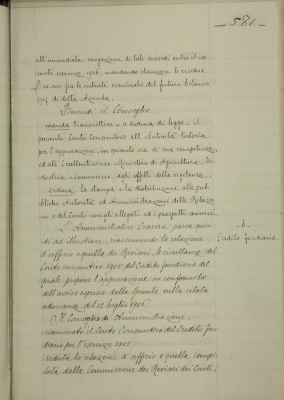 — 581 —
all'immediata erogazione di tali sussidi entro il cor-
rente esercizio 1906, mandando stanziare le residue
L. 10.000 fra le entrate eventuali del futuro bilancio
1907 di detta Azienda.
Quindi il Consiglio
manda trasmettere - a norma di legge - il
presente Conto Consuntivo all'Autorità tutoria
per l'approvazione, in quanto sia di sua competenza,
ed all'Eccellentissimo Ministero di Agricoltura, In-
dustria e Commercio, agli effetti della vigilanza,
ordina la stampa e la distribuzione alle pub-
bliche Autorità ed Amministrazioni delle Relazio-
ni e del Conto cogli allegati ed i prospetti annessi.
— 6. —
Credito Fondiario
L'Amministratore passa quin-
di ad illustrare, riassumendo la relazione
d'ufficio e quella dei Revisori, le risultanze del
Conto consuntivo 1905 del Credito Fondiario del
quale propone l'approvazione in conformità
dell'avviso espresso dalla Giunta nella citata
adunanza del 12 luglio 1906.
Il Consiglio di Amministrazione
esaminato il Conto Consuntivo del Credito Fon-
diario per l'esercizio 1905
veduta la relazione d'ufficio e quella compi-
lata dalla Commissione dei Revisori dei Conti;